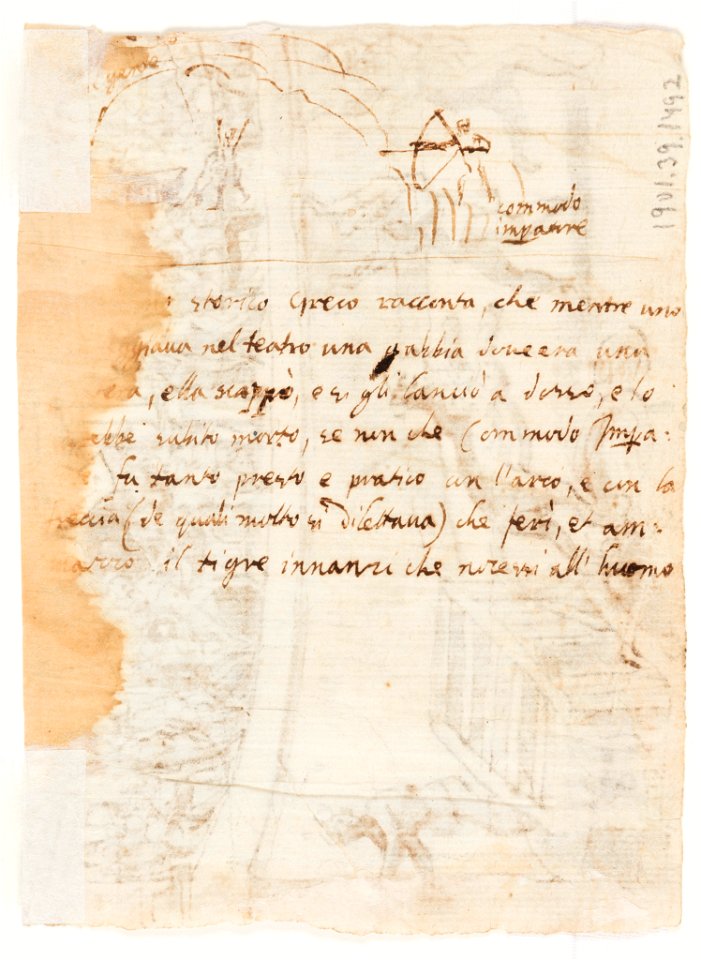 1901.39.1492
commodo
impatore
storico Greco racconta, che mentre uno
nel teatro una gabbia dove era una
ella scappò, e si gli lanciò a dosso, e lo
ebbe subito morto, se non che Commodo Impa:
fu tanto presto e pratico con l'arco, e con la
(de quali molto si dilettava) che ferì, et am:
il tigre innanzi che nocessi all' huomo